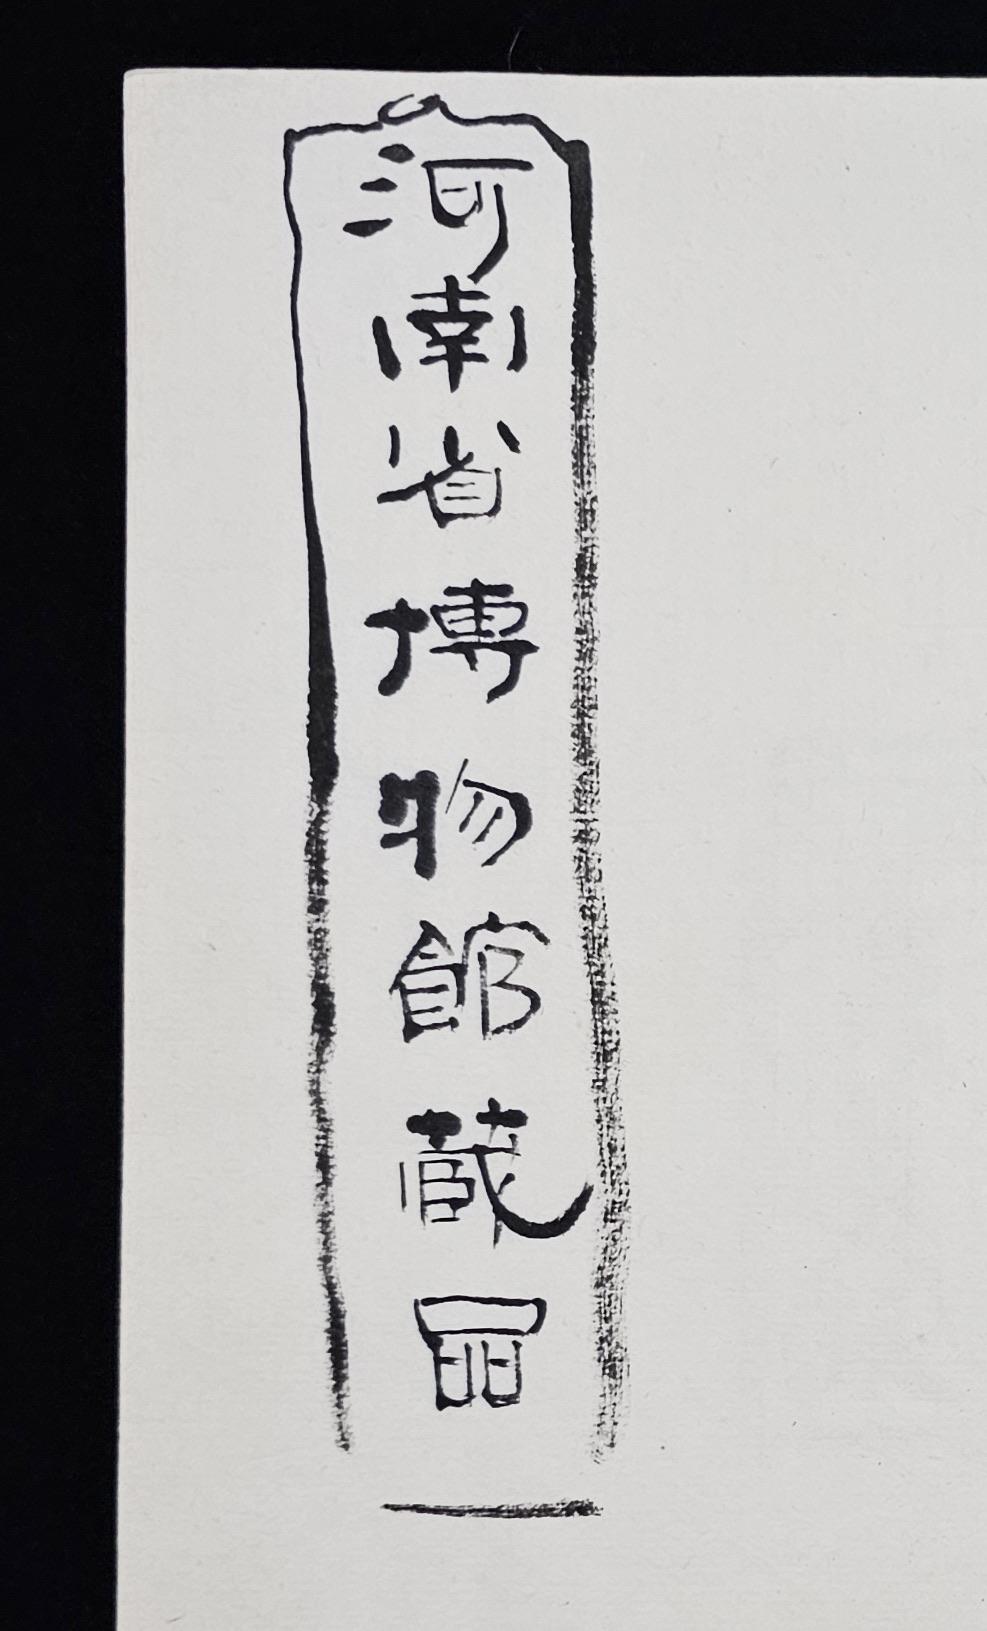 河南省博物館藏品